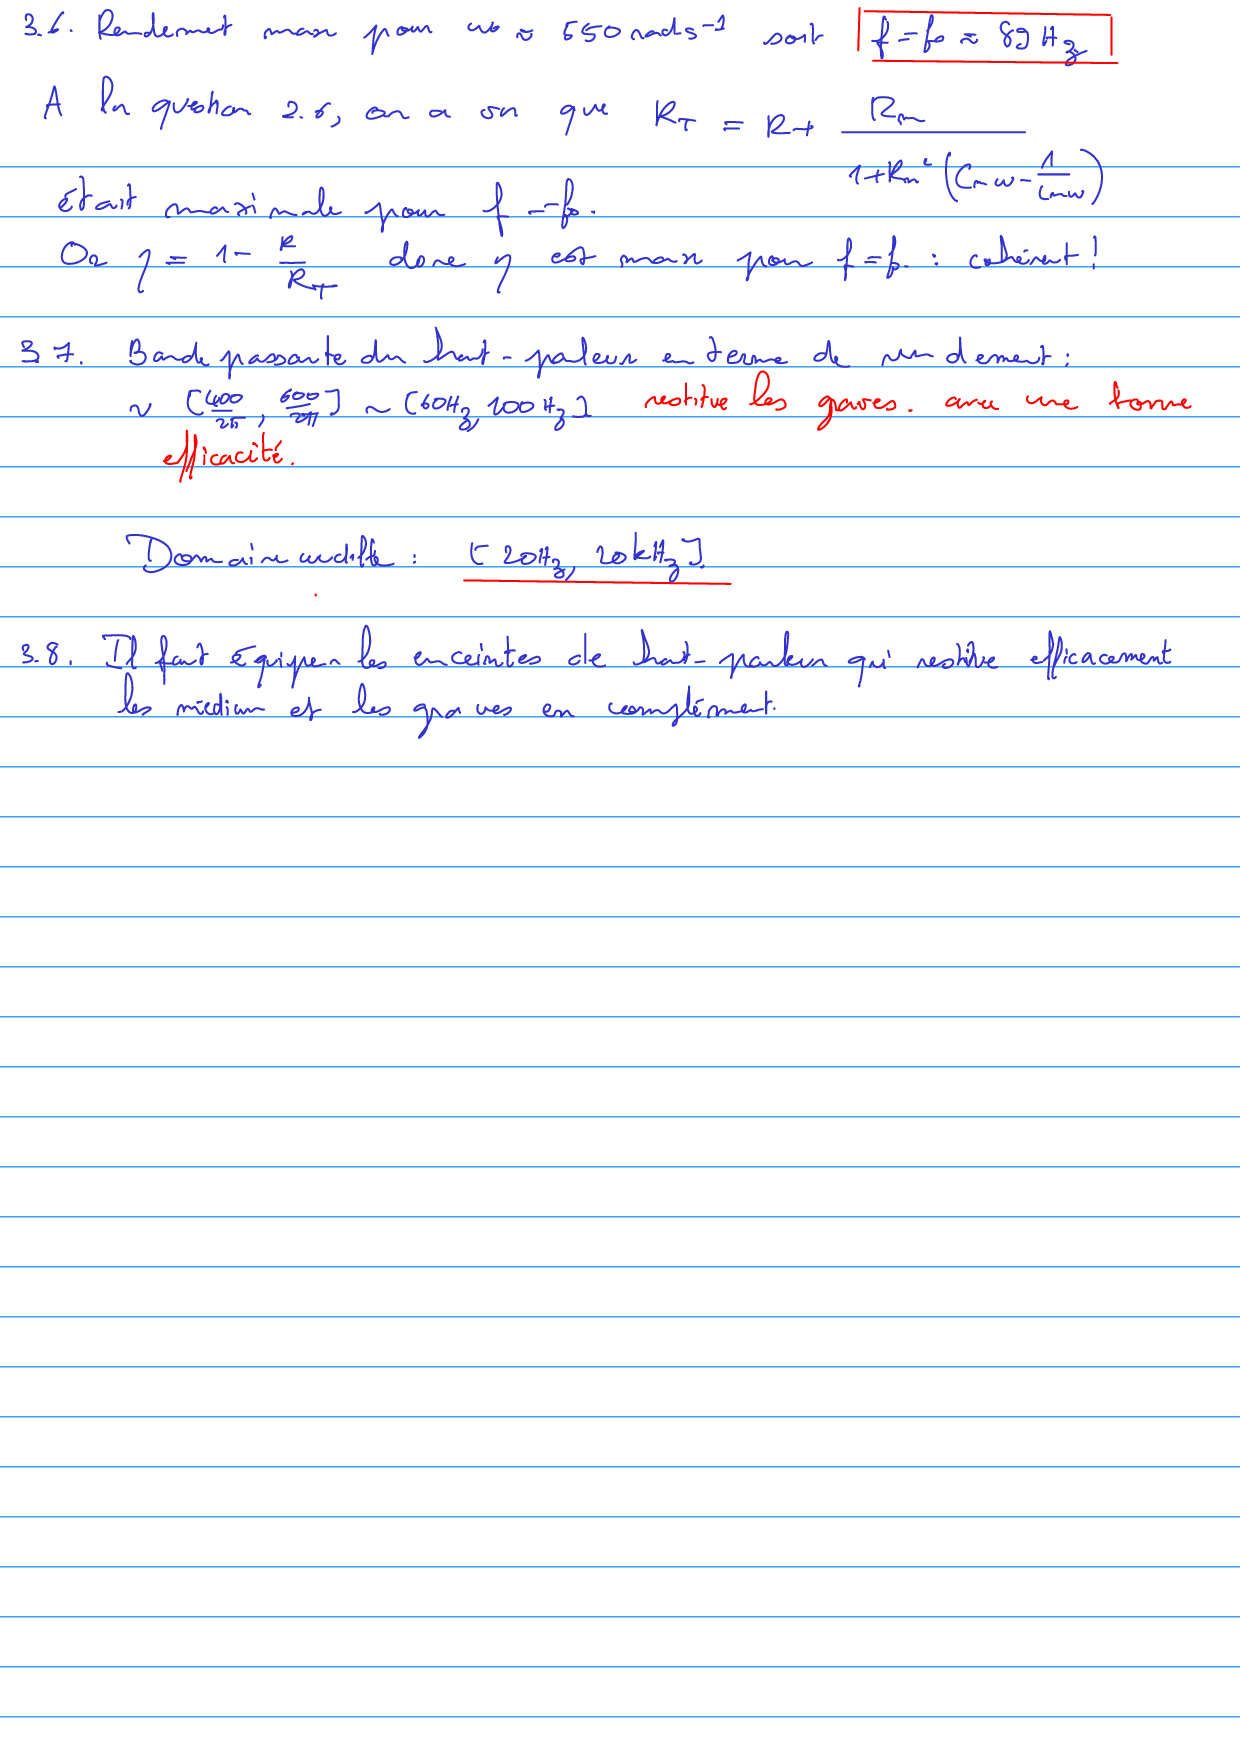 3.6. Rendement max pour ω0 ≈ 550 rad s⁻¹ soit f = f0 ≈ 89 Hz
A la question 2.6, on a vu que R_T = R + Rm / (1 + Rm² (Cm ω − 1/(Lm ω)))
était maximale pour f = f0.
Or η = 1 − R/R_T donc η est max pour f = f0 : cohérent !
3.7. Bande passante du haut-parleur en terme de rendement :
~ [400/2π, 600/2π] ~ [60Hz, 100Hz] restitue les graves. avec une bonne
efficacité.
Domaine audible : [20Hz, 20kHz].
3.8. Il faut équiper les enceintes de haut-parleur qui restitue efficacement
les médium et les graves en complément.